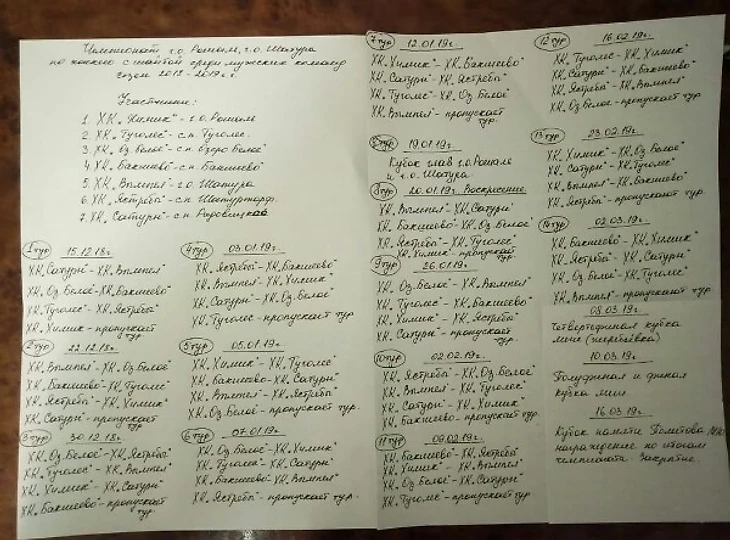 Чемпионат г.о. Рошаль, г.о. Шатура
по хоккею с шайбой среди мужских команд
сезон 2018 - 2019 г.г.
Участники:
1. ХК „Химик" - г.о. Рошаль
2. ХК „Туголес" - с.п. Туголес.
3. ХК „Оз. Белое" - с.п. Озеро Белое"
4. ХК „Бакшеево" - с.п. Бакшеево"
5. ХК „Вымпел" - г.о. Шатура
6. ХК „Ястребы" - с.п. Шатурторф.
7. ХК „Сатурн" - с.п. Радовицкое
1 тур 15.12.18г.
ХК„Сатурн" - ХК„Вымпел"
ХК„Оз.Белое" - ХК„Бакшеево"
ХК„Туголес" - ХК„Ястребы"
ХК„Химик" - пропускает тур
2 тур 22.12.18г.
ХК„Вымпел" - ХК„Оз.Белое"
ХК„Бакшеево" - ХК„Туголес"
ХК„Ястребы" - ХК„Химик"
ХК„Сатурн" - пропускает тур
3 тур 30.12.18г.
ХК„Оз.Белое" - ХК„Ястребы"
ХК„Туголес" - ХК„Вымпел"
ХК„Химик" - ХК„Сатурн"
ХК„Бакшеево" - пропускает тур.
4 тур 03.01.19г.
ХК„Ястребы" - ХК„Бакшеево"
ХК„Вымпел" - ХК„Химик"
ХК„Сатурн" - ХК„Оз.Белое"
ХК„Туголес" - пропускает тур
5 тур 05.01.19г.
ХК„Химик" - ХК„Туголес"
ХК„Бакшеево" - ХК„Сатурн"
ХК„Вымпел" - ХК„Ястребы"
ХК„Оз.Белое" - пропускает тур
6 тур 07.01.19г.
ХК„Оз.Белое" - ХК„Химик"
ХК„Туголес" - ХК„Сатурн"
ХК„Бакшеево" - ХК„Вымпел"
ХК„Ястребы" - пропускает тур.
7 тур 12.01.19г.
ХК„Химик" - ХК„Бакшеево"
ХК„Сатурн" - ХК„Ястребы"
ХК„Туголес" - ХК„Оз.Белое"
ХК„Вымпел" - пропускает тур.
19.01.19г.
Кубок глав г.о.Рошаль
и г.о. Шатура
8 тур 20.01.19г. Воскресение
ХК„Вымпел" - ХК„Сатурн"
ХК„Бакшеево" - ХК„Оз.Белое"
ХК„Ястребы" - ХК„Туголес"
ХК„Химик" - пропускает тур
9 тур 26.01.19г.
ХК„Оз.Белое" - ХК„Вымпел"
ХК„Туголес" - ХК„Бакшеево"
ХК„Химик" - ХК„Ястребы"
ХК„Сатурн" - пропускает тур.
10 тур 02.02.19г.
ХК„Ястребы" - ХК„Оз.Белое"
ХК„Вымпел" - ХК„Туголес"
ХК„Сатурн" - ХК„Химик"
ХК„Бакшеево - пропускает тур
11 тур 09.02.19г.
ХК„Бакшеево" - ХК„Ястребы"
ХК„Химик" - ХК„Вымпел"
ХК„Оз.Белое" - ХК„Сатурн"
ХК„Туголес" - пропускает тур.
12 тур 16.02.19г.
ХК„Туголес" - ХК„Химик"
ХК„Сатурн" - ХК„Бакшеево"
ХК„Ястребы" - ХК„Вымпел"
ХК„Оз.Белое" - пропускает тур
13 тур 23.02.19г.
ХК„Химик" - ХК„Оз.Белое"
ХК„Сатурн" - ХК„Туголес"
ХК„Вымпел" - ХК„Бакшеево"
ХК„Ястребы" - пропускает тур.
14 тур 02.03.19г.
ХК„Бакшеево" - ХК„Химик"
ХК„Ястребы" - ХК„Сатурн"
ХК„Оз.Белое" - ХК„Туголес"
ХК„Вымпел" - пропускает тур
08.03.19
Четвертьфинал кубка
лиги (жеребьёвка)
10.03.19г
Полуфинал и финал
кубка лиги
16.03.19г
Кубок памяти
награждение по итогам
чемпионата. Закрытие.